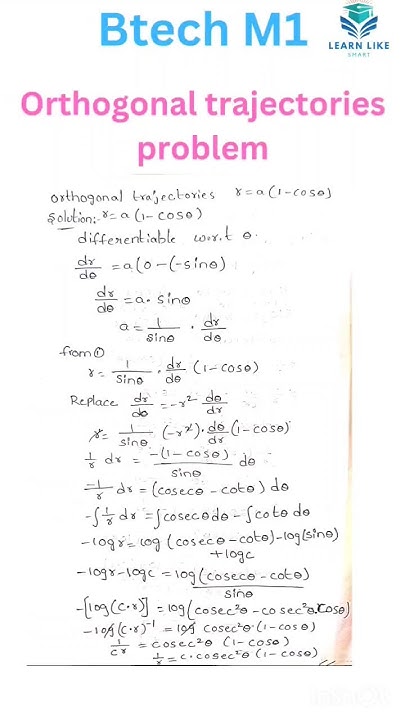 Btech M1
LEARN LIKE
SMART
Orthogonal trajectories
problem
orthogonal trajectories r = a(1-cosθ)
Solution:- r = a(1-cosθ)
differentiable w.r.t θ.
dr/dθ = a(0-(-sinθ)
dr/dθ = a. sinθ
a = 1/sinθ . dr/dθ
from ①
r = 1/sinθ . dr/dθ (1-cosθ)
Replace dr/dθ = -r² dθ/dr
r = 1/sinθ (-r²). dθ/dr (1-cosθ)
1/r dr = -(1-cosθ)/sinθ dθ
-1/r dr = (cosecθ - cotθ) dθ
-∫1/r dr = ∫cosecθ dθ - ∫cotθ dθ
-logr = log(cosecθ-cotθ)-log(sinθ)
+logc
-logr-logc = log(cosecθ-cotθ)/sinθ
-[log(c.r)] = log(cosec²θ-cosec²θ.cosθ)
-log(c.r)⁻¹ = log cosec²θ.(1-cosθ)
1/cr = cosec²θ (1-cosθ)
1/r = c.cosec²θ (1-cosθ)